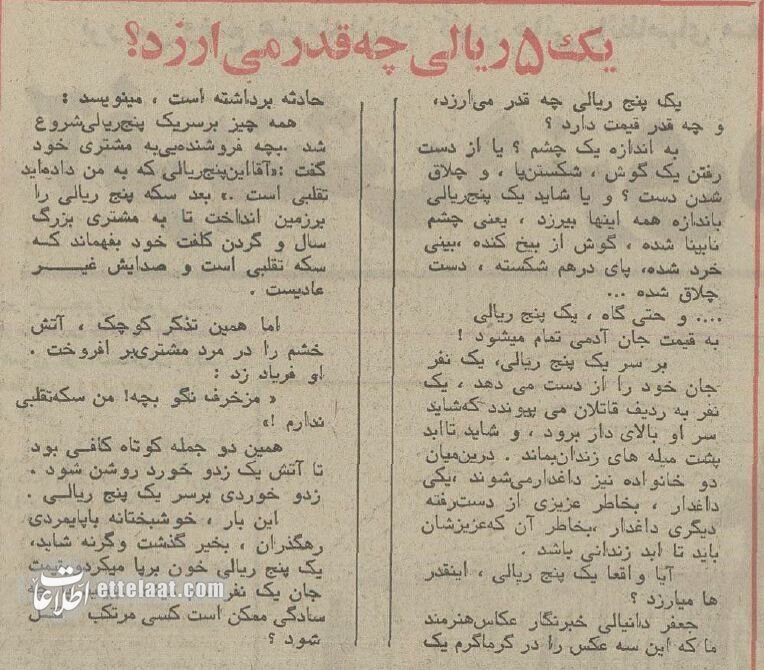 یک ۵ ریالی چه قدر می ارزد؟
یک پنج ریالی چه قدر می‌ارزد،
و چه قدر قیمت دارد ؟
به اندازه یک چشم ؟ یا از دست
رفتن یک گوش ، شکستن‌پا ، و چلاق
شدن دست ؟ و یا شاید یک پنج‌ریالی
باندازه همه اینها بیرزد ، یعنی چشم
نابینا شده ، گوش از بیخ کنده ،بینی
خرد شده، پای درهم شکسته ، دست
چلاق شده ...
.... و حتی گاه ، یک پنج ریالی
به قیمت جان آدمی تمام میشود !
بر سر یک پنج ریالی، یک نفر
جان خود را از دست می دهد ، یک
نفر به ردیف قاتلان می پیوندد که‌شاید
سر او بالای دار برود ، و شاید تاابد
پشت میله های زندان‌بماند . درین‌میان
دو خانواده نیز داغدارمی‌شوند ،یکی
داغدار ، بخاطر عزیزی از دست‌رفته
دیگری داغدار ،بخاطر آن که‌عزیزشان
باید تا ابد زندانی باشد .
آیا واقعا یک پنج ریالی ، اینقدر
ها میارزد ؟
جعفر دانیالی خبرنگار عکاس‌هنرمند
ما که این سه عکس را در گرماگرم یک
حادثه برداشته است ، مینویسد :
همه چیز برسریک پنج‌ریالی‌شروع
شد .بچه فروشنده‌یی‌به مشتری خود
گفت :«آقااین‌پنج‌ریالی که به من داده‌اید
تقلبی است .» بعد سکه پنج ریالی را
برزمین انداخت تا به مشتری بزرگ
سال و گردن کلفت خود بفهماند کـه
سکه تقلبی است و صدایش غیـــر
عادیست .
اما همین تذکر کوچک ، آتش
خشم را در مرد مشتری‌بر افروخت .
او فریاد زد :
« مزخرف نگو بچه! من سکه‌تقلبی
ندارم !»
همین دو جمله کوتاه کافـی بود
تا آتش یک زدو خورد روشن شود .
زدو خوردی برسر یک پنج ریالـی .
این بار ، خوشبختانه باپایمردی
رهگذران ، بخیر گذشت وگرنه شاید،
یک پنج ریالی خون برپا میکردو قیمت
جان یک نفر
سادگی ممکن است کسی مرتکب
شود ؟
اطلاعات ettelaat.com